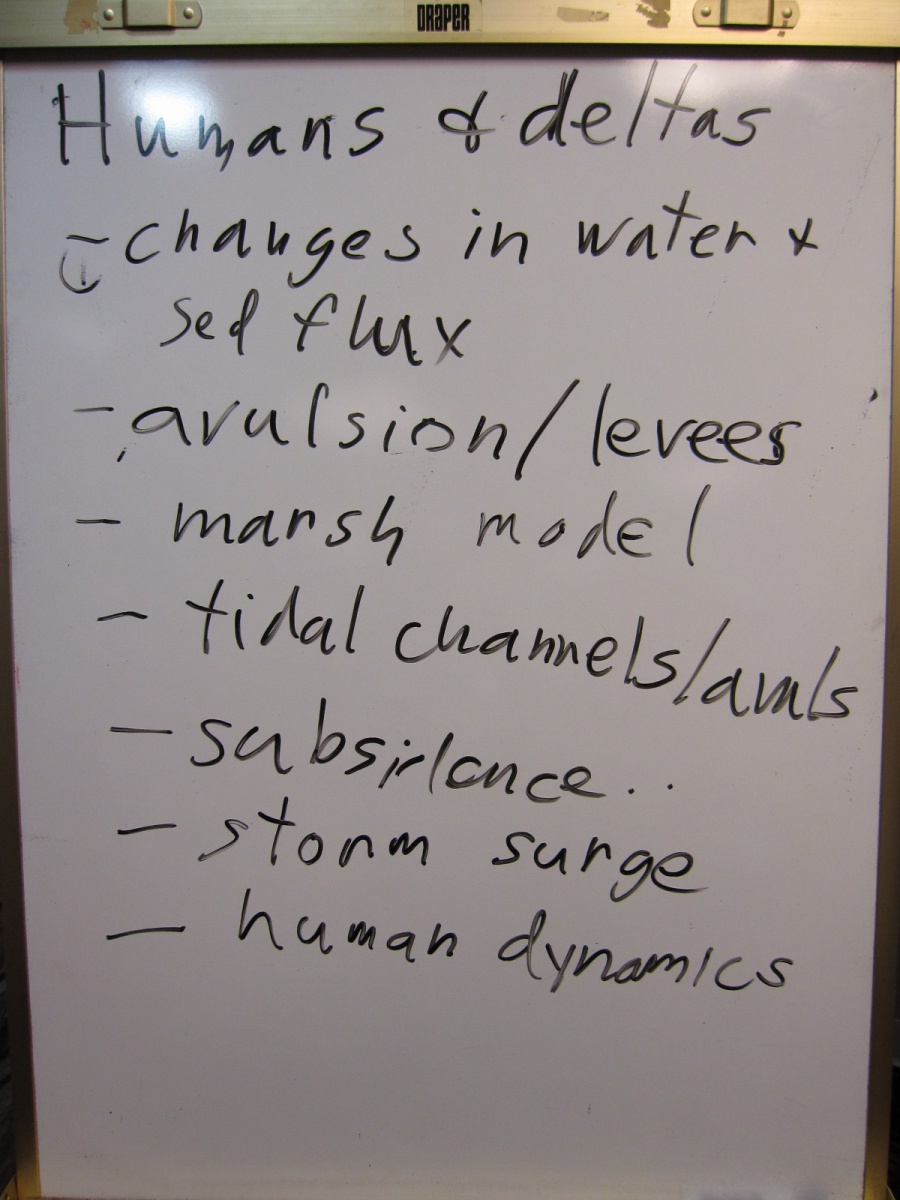 DRAPER
Humans & deltas
- changes in water +
sed flux
- avulsion/levees
- marsh model
- tidal channels/avuls
- subsidence...
- storm surge
- human dynamics